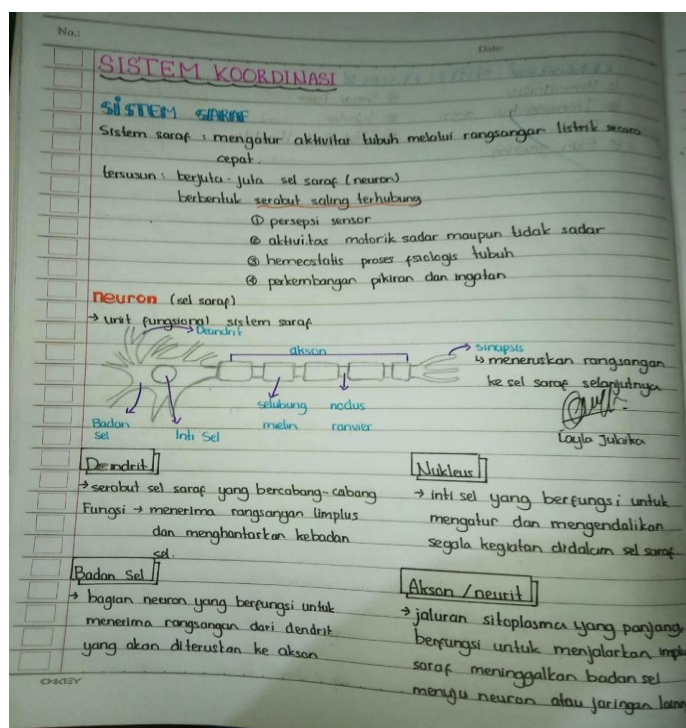 No.:
Date:
SISTEM KOORDINASI
SISTEM SARAF
Sistem saraf : mengatur aktivitas tubuh melalui rangsangan listrik secara
cepat.
tersusun : berjuta-juta sel saraf (neuron)
berbentuk serabut saling terhubung
① persepsi sensor
② aktivitas motorik sadar maupun tidak sadar
③ hemeostatis proses fsiologis tubuh
④ perkembangan pikiran dan ingatan
neuron (sel saraf)
→ unit fungsional sistem saraf
Deandrit
akson
sinapsis
↳ meneruskan rangsangan
ke sel saraf selanjutnya
selubung
mielin
nodus
ranvier
Badan
Sel
Inti Sel
Layla Julaika
Dendrit
→ serabut sel saraf yang bercabang-cabang
Fungsi → menerima rangsangan limplus
dan menghantarkan kebadan
sel.
Nukleus
→ inti sel yang berfungsi untuk
mengatur dan mengendalikan
segala kegiatan didalam sel saraf
Badan Sel
→ bagian neuron yang berfungsi untuk
menerima rangsangan dari dendrit
yang akan diteruskan ke akson
Akson / neurit
→ jaluran sitoplasma yang panjang
berfungsi untuk menjalarkan implu
saraf meninggalkan badan sel
menuju neuron atau jaringan lainn
OKEY